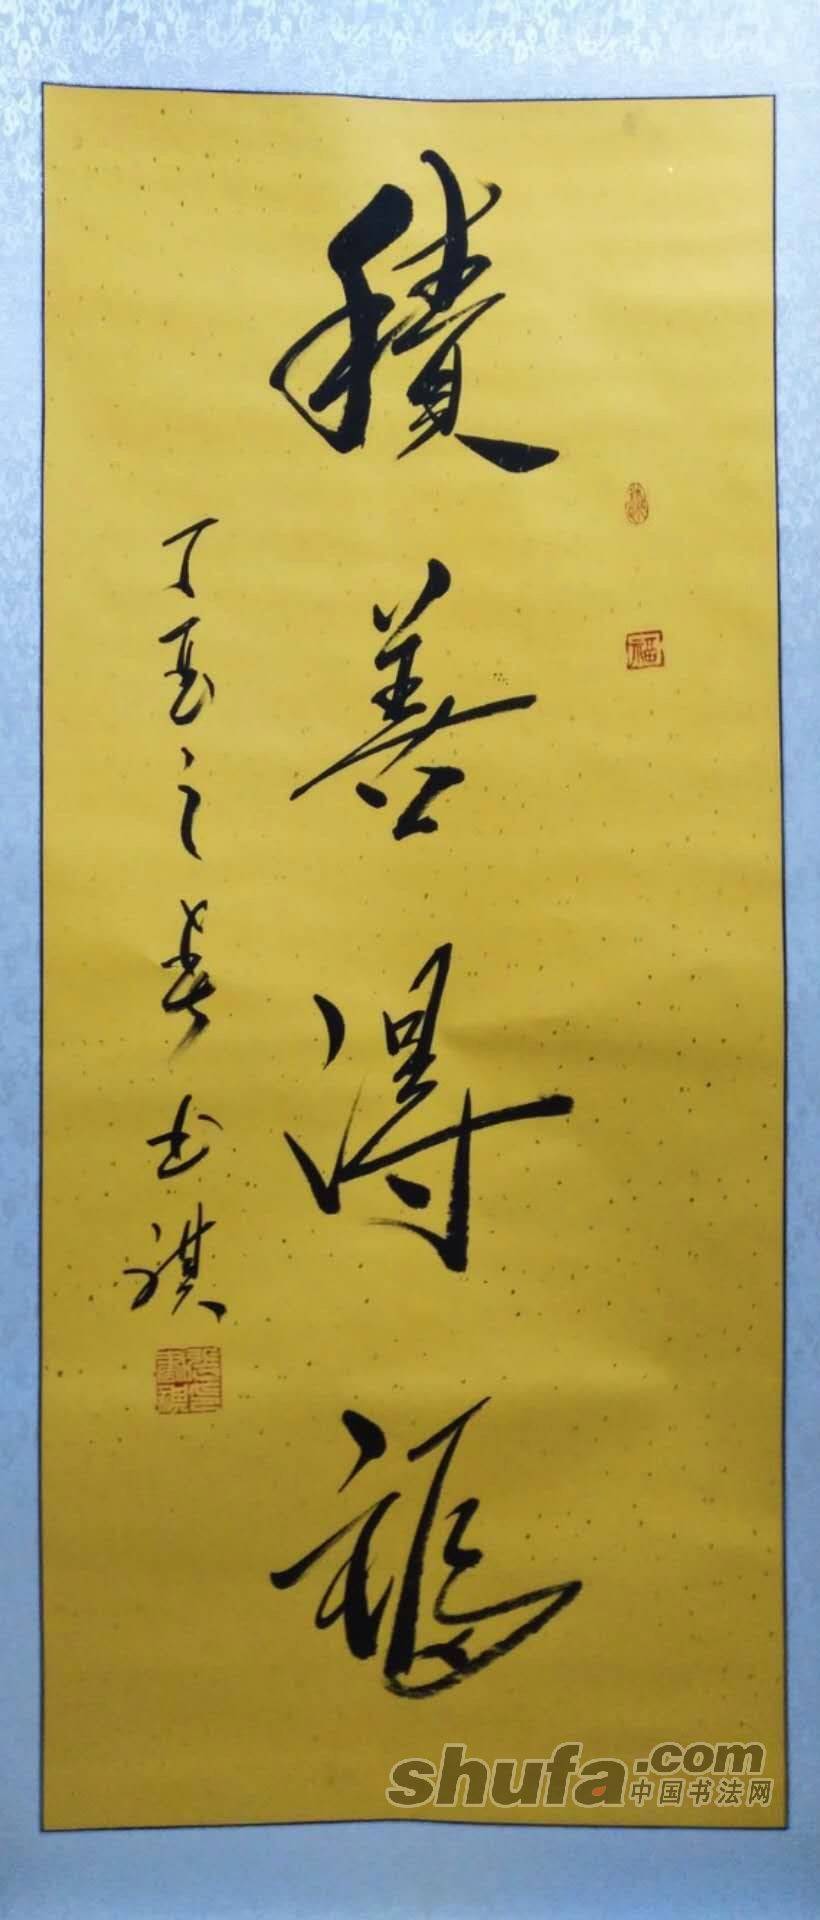 積善得福
丁酉之春书祺
福
shufa.com
中国书法网